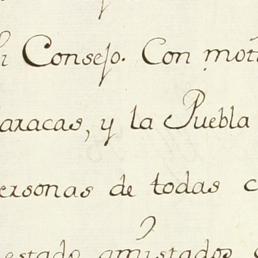 Consejo. Con mot
aracas, y la Puebla
ersonas de todas c
estado amistados